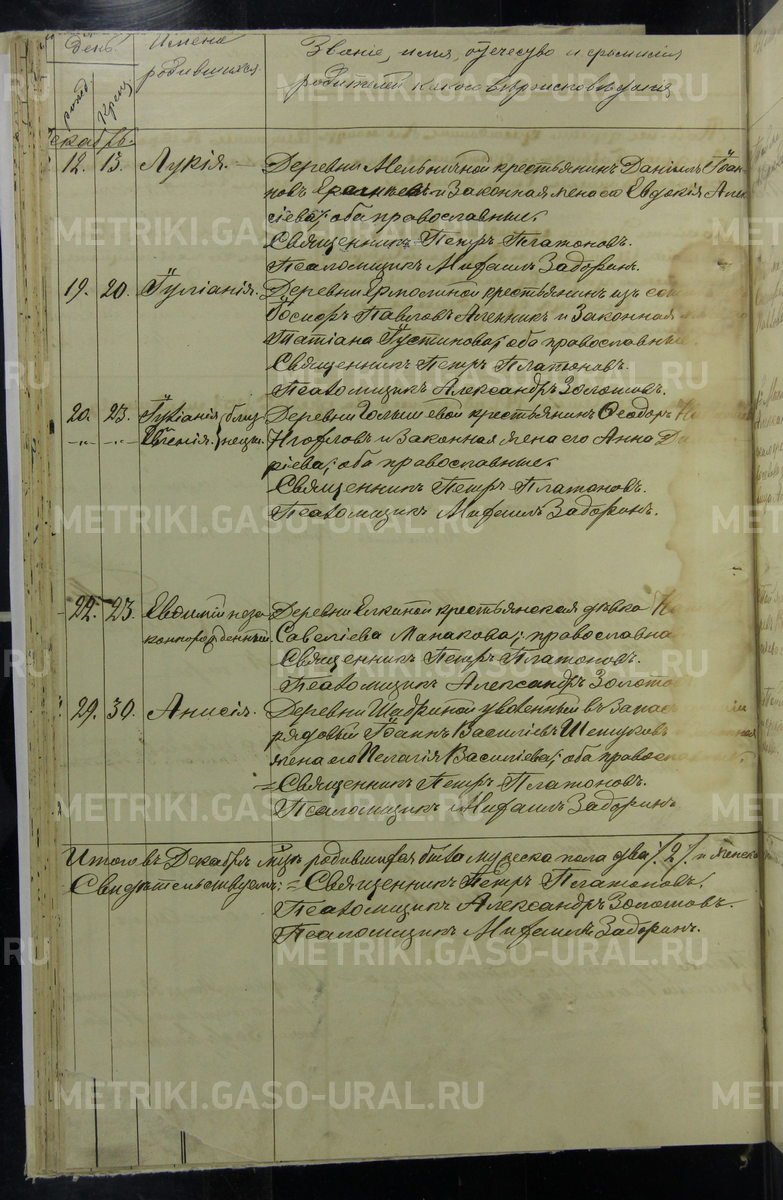 День Имена Званіе, имя, отчество и фамилія
рожд. крещ. родившихся родителей и какого вѣроисповѣданія
Декабрь.
12. 13. Лукія. Деревни Мельничной крестьянинъ Даніилъ Іоан-
новъ и законная жена его Евдокія Алек-
сіева; оба православные.
Священникъ Петръ Платоновъ.
Псаломщикъ Михаилъ Задоринъ.
19. 20. Іуліанія. Деревни Ермолиной крестьянинъ изъ
Іосифъ Павловъ Аленникъ и законная
Татіана Іустинова; оба православные.
Священникъ Петръ Платоновъ.
Псаломщикъ Александръ Золотовъ.
20. 23. Іуліанія близ Деревни Голышевой крестьянинъ Ѳеодоръ
-„- -„- Евгенія. нецы. и законная жена его Анна Да
ріева; оба православные.
Священникъ Петръ Платоновъ.
Псаломщикъ Михаилъ Задоринъ.
22. 23. Евѳимій неза Деревни Елкиной крестьянская дѣвка
коннорожденный. Савеліева Манакова; православна
Священникъ Петръ Платоновъ.
Псаломщикъ Александръ Золото
29. 30. Анисія. Деревни Шадриной уволенный въ запас
рядовый Іоаннъ Василіевъ
жена его Пелагія Василіева; оба правосл
= Священникъ Петръ Платоновъ.
Псаломщикъ Михаилъ Задоринъ
Итого въ Декабрѣ мѣцѣ родившихся было мужеска пола два /2/ и женск
Свидѣтельствуемъ: = Священникъ Петръ Платоновъ.
Псаломщикъ Александръ Золотовъ.
Псаломщикъ Михаилъ Задоринъ.
METRIKI.GASO-URAL.RU